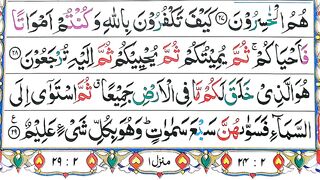 هُمُ الْخٰسِرُوْنَ ﴿۲۷﴾ كَيْفَ تَكْفُرُوْنَ بِاللّٰهِ وَ كُنْتُمْ اَمْوَاتًا
فَاَحْيَاكُمْ ۚ ثُمَّ يُمِيْتُكُمْ ثُمَّ يُحْيِيْكُمْ ثُمَّ اِلَيْهِ تُرْجَعُوْنَ ﴿۲۸﴾
هُوَ الَّذِيْ خَلَقَ لَكُمْ مَّا فِي الْاَرْضِ جَمِيْعًا ۗ ثُمَّ اسْتَوٰۤى اِلَى
السَّمَآءِ فَسَوّٰىهُنَّ سَبْعَ سَمٰوٰتٍ ؕ وَهُوَ بِكُلِّ شَيْءٍ عَلِيْمٌ ﴿۲۹﴾ ع
۲ : ۲۹ منزل ۱ ۲ : ۲۴